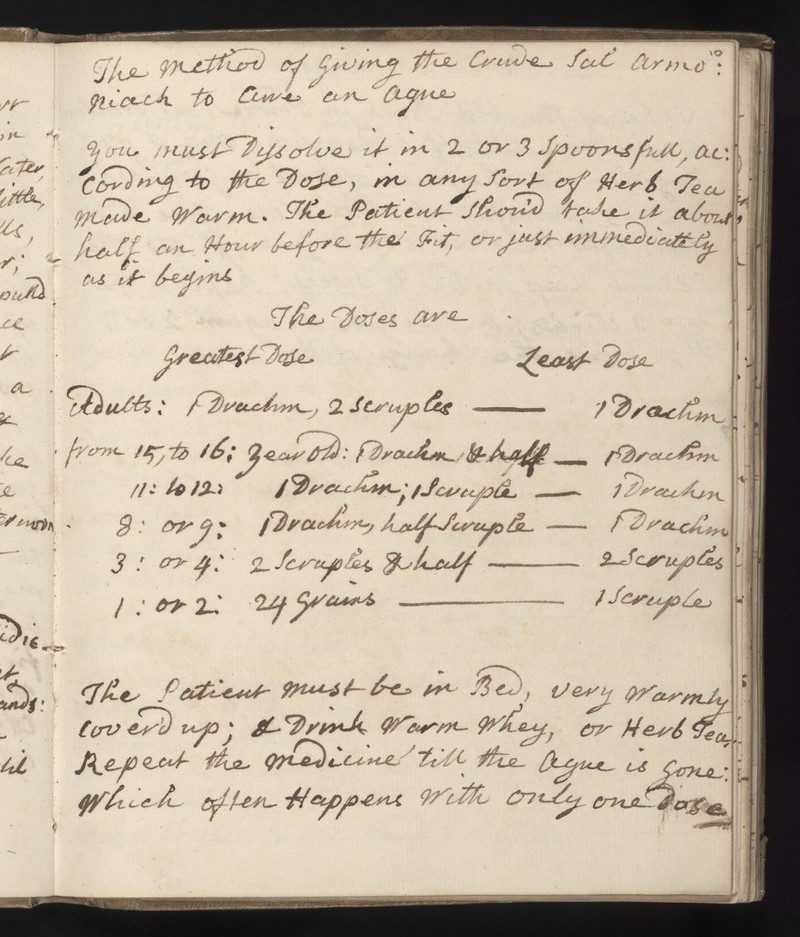 10
The Method of Giving the Crude Sal Armo:
niach to Cure an Ague
you must Dissolve it in 2 or 3 Spoonsfull, ac:
Cording to the Dose, in any Sort of Herb Tea
made Warm. The Patient Shou'd take it about
half an Hour before the Fit, or just immediattly
as it begins
The Doses are
Greatest Dose Least Dose
Adults: 1 Drachm, 2 Scruples — 1 Drachm
from 15, to 16: Year Old: 1 Drachm & half — 1 Drachm
11: to 12: 1 Drachm; 1 Scruple — 1 Drachm
8: or 9: 1 Drachm, half Scruple — 1 Drachm
3: or 4: 2 Scruples & half — 2 Scruples
1: or 2: 24 Grains — 1 Scruple
The Patient must be in Bed, very Warmly
Cover'd up; & Drink Warm Whey, or Herb Tea,
Repeat the Medicine till the Ague is gone:
Which often Happens With only one Dose